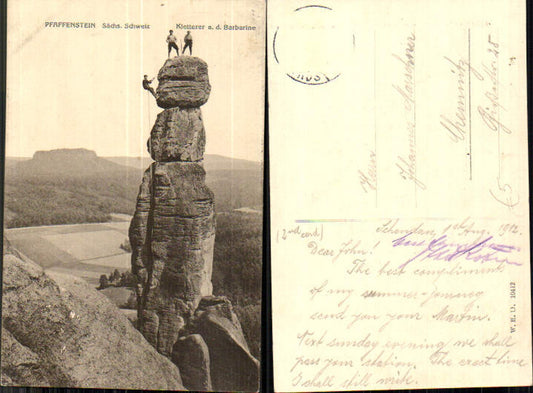 PFAFFENSTEIN Sächs. Schweiz
Kletterer a. d. Barbarine
Herr
Johannes
Chemnitz
25
(2nd card)
Schandau, 1st Aug. 1912.
Dear John!
The best compliment
of my summer-journey
send you your Martin.
Next sunday evening we shall
pass your station. The exact time
I shall still write.
W. E. D. 10412